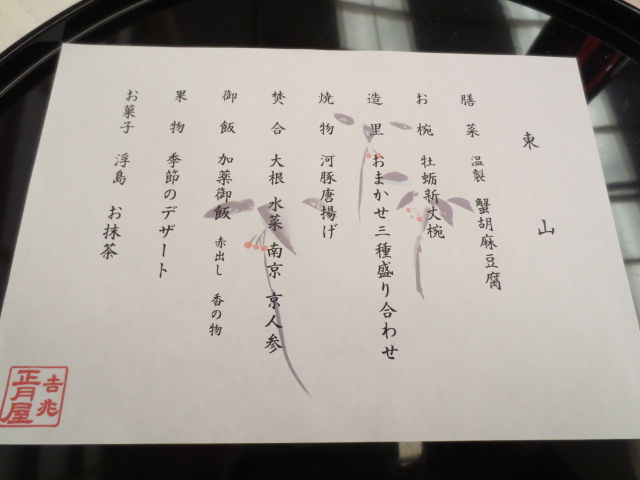 東山
膳菜 温製 蟹胡麻豆腐
お椀 牡蛎新丈椀
造里 おまかせ三種盛り合わせ
焼物 河豚唐揚げ
焚合 大根 水菜 南京 京人参
御飯 加薬御飯 赤出し 香の物
果物 季節のデザート
お菓子 浮島 お抹茶
吉兆
正月屋